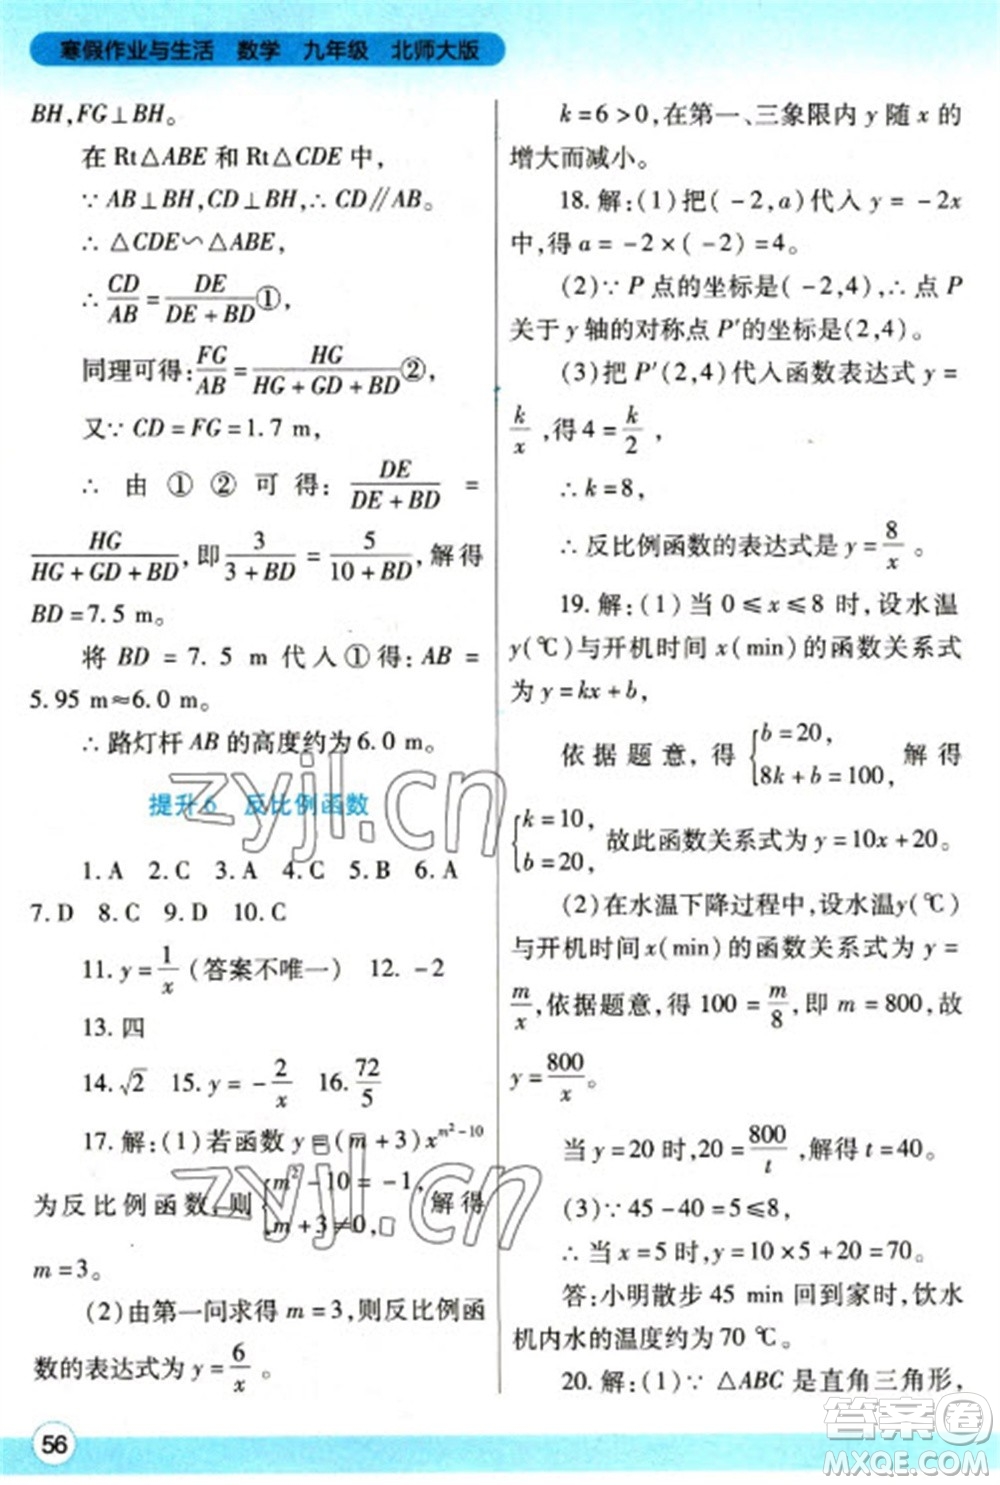 寒假作业与生活 数学 九年级 北师大版
BH,FG⊥BH。
在 Rt△ABE 和 Rt△CDE 中,
∵AB⊥BH,CD⊥BH,∴CD∥AB。
∴△CDE∽△ABE,
∴CD/AB=DE/(DE+BD)①,
同理可得:FG/AB=HG/(HG+GD+BD)②,
又∵CD=FG=1.7 m,
∴由①②可得:DE/(DE+BD)=
HG/(HG+GD+BD),即3/(3+BD)=5/(10+BD),解得
BD=7.5 m。
将 BD=7.5 m 代入①得:AB=
5.95 m≈6.0 m。
∴路灯杆 AB 的高度约为6.0 m。
提升6 反比例函数
1.A 2.C 3.A 4.C 5.B 6.A
7.D 8.C 9.D 10.C
11.y=1/x(答案不唯一) 12.-2
13.四
14.√2 15.y=-2/x 16.72/5
17.解:(1)若函数 y=(m+3)x^(m²-10)
为反比例函数,则{m²-10=-1, m+3≠0,解得
m=3。
(2)由第一问求得 m=3,则反比例函
数的表达式为 y=6/x。
k=6>0,在第一、三象限内 y 随 x 的
增大而减小。
18.解:(1)把(-2,a)代入 y=-2x
中,得 a=-2×(-2)=4。
(2)∵P 点的坐标是(-2,4),∴点 P
关于 y 轴的对称点 P′的坐标是(2,4)。
(3)把 P′(2,4)代入函数表达式 y=
k/x,得4=k/2,
∴k=8,
∴反比例函数的表达式是 y=8/x。
19.解:(1)当 0≤x≤8 时,设水温
y(℃)与开机时间 x(min)的函数关系式
为 y=kx+b,
依据题意,得{b=20, 8k+b=100,解得
{k=10, b=20,故此函数关系式为 y=10x+20。
(2)在水温下降过程中,设水温y(℃)
与开机时间x(min)的函数关系式为 y=
m/x,依据题意,得 100=m/8,即 m=800,故
y=800/x。
当 y=20 时,20=800/t,解得 t=40。
(3)∵45-40=5≤8,
∴当 x=5 时,y=10×5+20=70。
答:小明散步 45 min 回到家时,饮水
机内水的温度约为 70 ℃。
20.解:(1)∵△ABC 是直角三角形,
56
zyjl.cn
zyjl.cn
答案圈
MXQE.COM